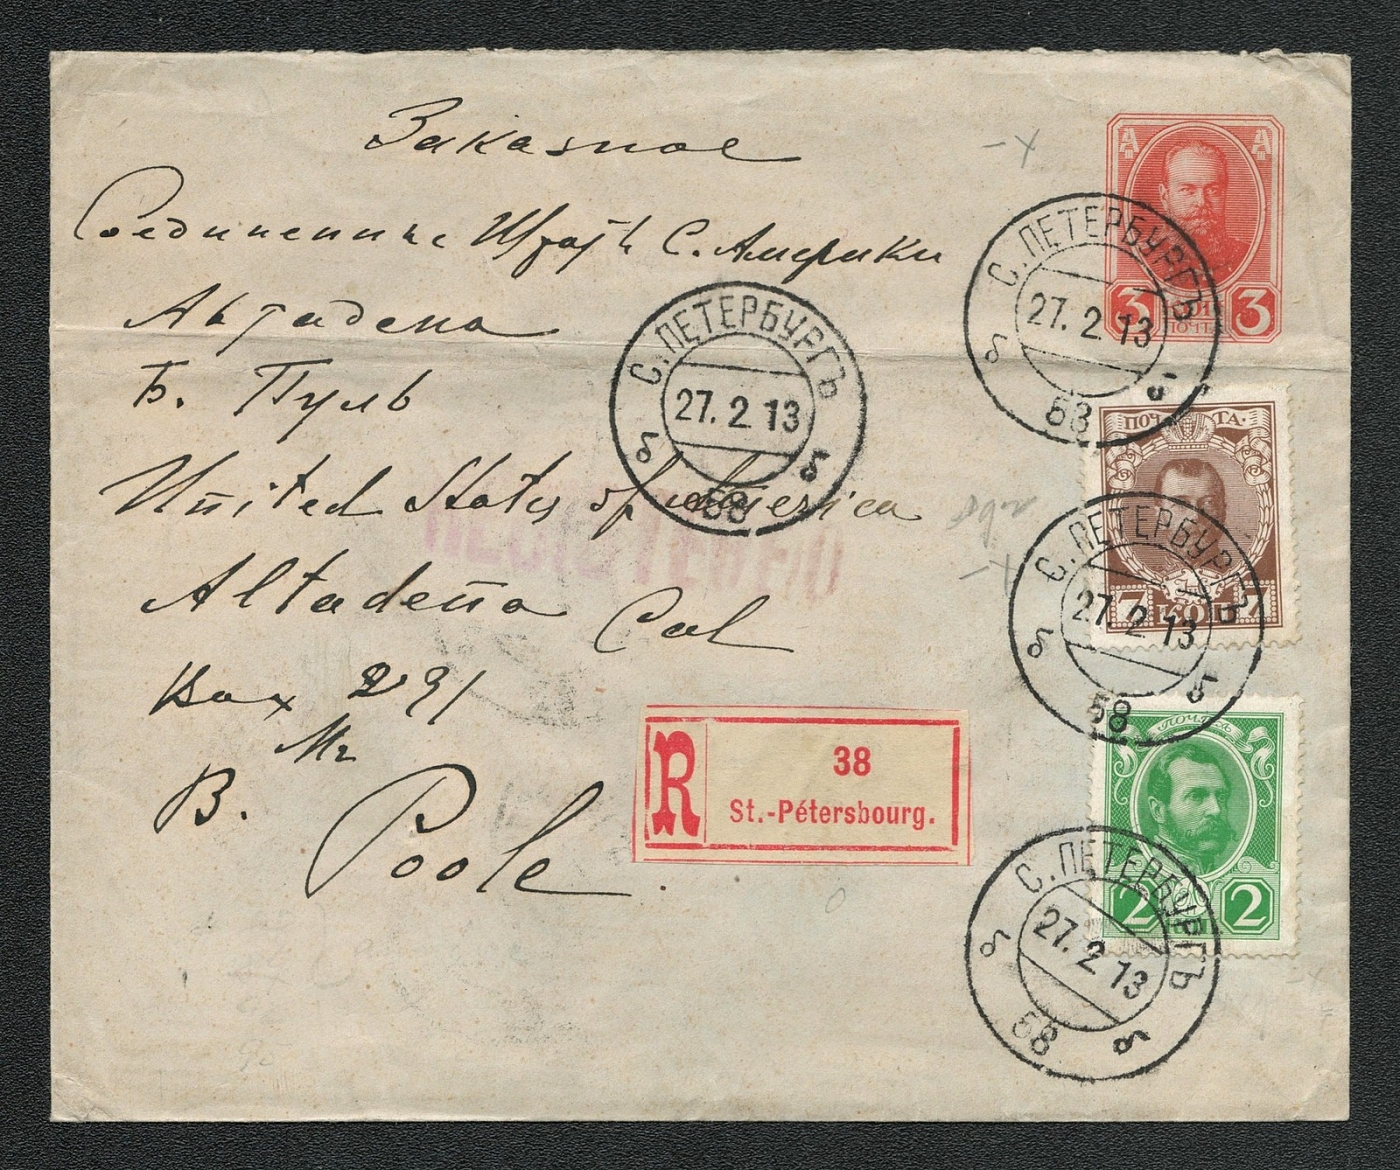 Заказное
Соединенные Штаты С. Америки
Алтадена
Б. Пуль
United States of America
Altadena Cal
Box 291
Mr
B. Poole.
REGISTERED
R
38
St.-Pétersbourg.
С. ПЕТЕРБУРГЪ
27. 2 13
58
3 КОП. 3
ПОЧТ.
С. ПЕТЕРБУРГЪ
27. 2 13
58
ПОЧТА.
7 КОП 7
С. ПЕТЕРБУРГЪ
27. 2 13
58
ПОЧТА
2 2
С. ПЕТЕРБУРГЪ
27. 2 13
58